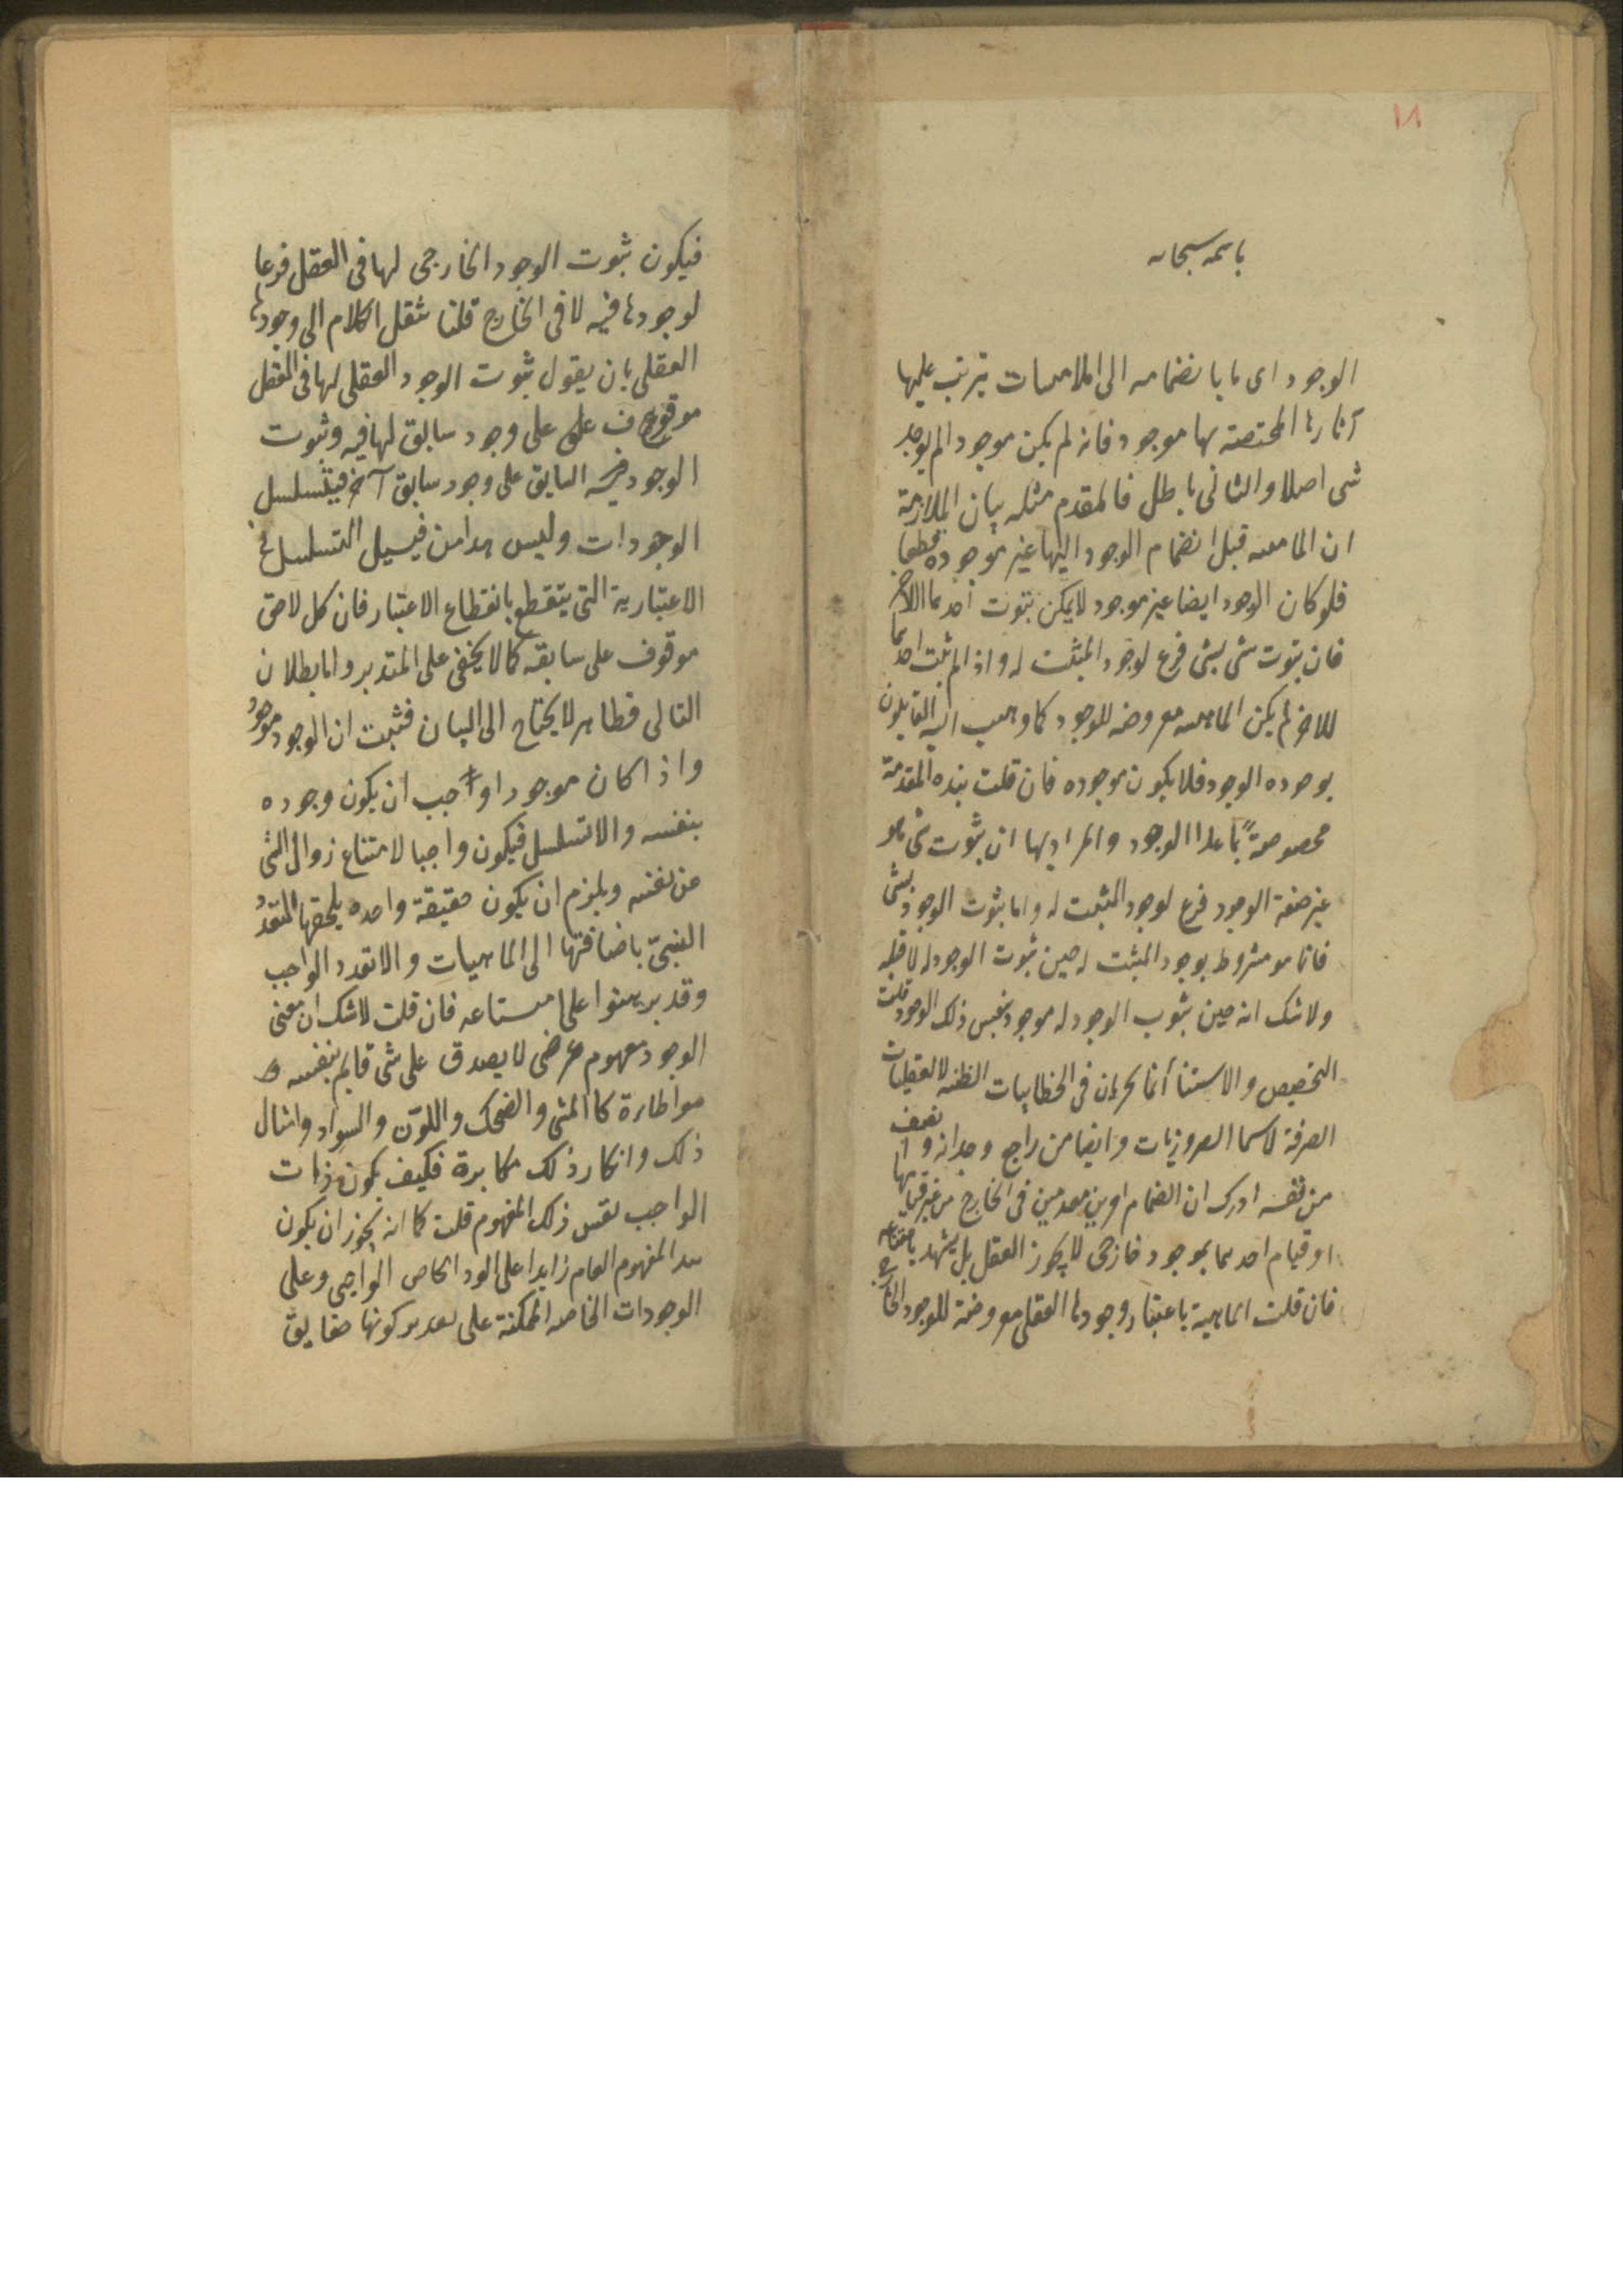 ١٨
باسمه سبحانه
الوجود اى ما بانضمامه الى الماهيات يترتب عليها
آثارها المختصة بها موجود فانه لم يكن موجودا لم يوجد
شى اصلا والتالى باطل فالمقدم مثله بيان الملازمة
ان الماهيه قبل انضمام الوجود اليها غير موجوده قطعا
فلو كان الوجود ايضا غير موجود لا يمكن ثبوت احدهما للاخر
فان ثبوت شى لشى فرع لوجود المثبت له واذا لم يثبت احدهما
للاخر لم يكن الماهيه معروضه للوجود كما ذهب اليه القايلون
بوجوده الوجود فلا يكون موجوده فان قلت هذه المقدمة
مخصوصة بما عدا الوجود والمراد بها ان ثبوت شى هو
غير صفة الوجود فرع لوجود المثبت له واما ثبوت الوجود لشى
فانما هو مشروط بوجود المثبت له حين ثبوت الوجود له لا قبله
ولا شك انه حين ثبوت الوجود له موجود بنفس ذلك الوجود قلت
التخصيص والاستثنا انما يجريان فى الخطابيات الظنيه لا العقليات
الصرفة لا سيما الضروريات وايضا من راجع وجدانه وانصف
من نفسه ادرك ان انضمام امرين معدومين فى الخارج من غير قيامها
او قيام احدهما بموجود خارجى لا يجوز العقل بل يشهد بامتناعه
فان قلت الماهية باعتبار وجودها العقلى معروضة للوجود الخارجى
فيكون ثبوت الوجود الخارجى لها فى العقل فرعا
لوجودها فيه لا فى الخارج قلنا ننقل الكلام الى وجودها
العقلى بان يقول ثبوت الوجود العقلى لها فى العقل
موقوف على على وجود سابق لها فيه وثبوت
الوجود السابق على وجود سابق آخر فيتسلسل
الوجودات وليس هذا من قبيل التسلسل فى
الاعتبارية التى ينقطع بانقطاع الاعتبار فان كل لاحق
موقوف على سابقه كما لا يخفى على المتدبر واما بطلان
التالى فظاهر لا يحتاج الى البيان فثبت ان الوجود موجود
واذا كان موجودا وجب ان يكون وجوده
بنفسه والا تسلسل فيكون واجبا لامتناع زوال الشى
عن نفسه ويلزم ان يكون حقيقة واحده يلحقها التعدد
النسبىّ باضافتها الى الماهيات والا تعدد الواجب
وقد برهنوا على امتناعه فان قلت لا شك ان معنى
الوجود مفهوم عرضى لا يصدق على شى قايم بنفسه
مواطاءة كالمشى والضحك واللون والسواد وامثال
ذلك وانكار ذلك مكابرة فكيف يكون ذات
الواجب نفس ذلك المفهوم قلت كما انه يجوز ان يكون
هذا المفهوم العام زايدا على الوجود الخاص الواجبى وعلى
الوجودات الخاصه الممكنة على تقدير كونها حقايق